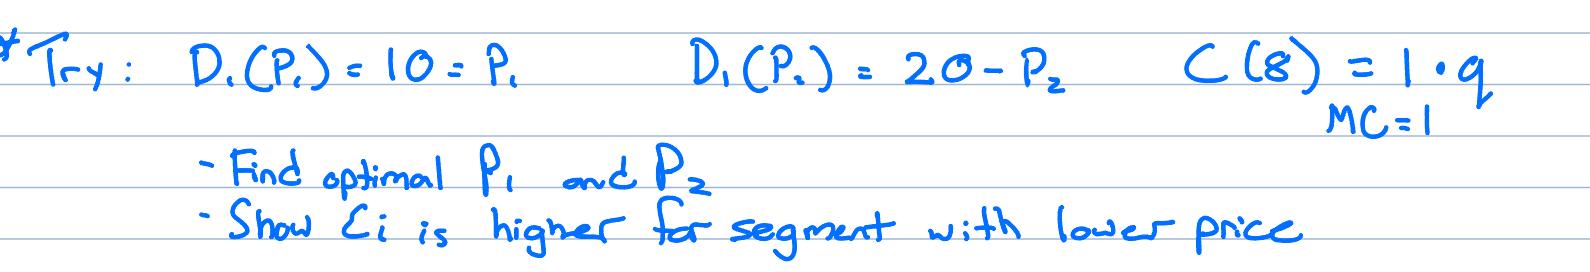 * Try: D₁(P₁) = 10 = P₁ D₁(P₂) = 20 - P₂ C(8) = 1·q
MC=1
- Find optimal P₁ and P₂
- Show Ɛi is higher for segment with lower price